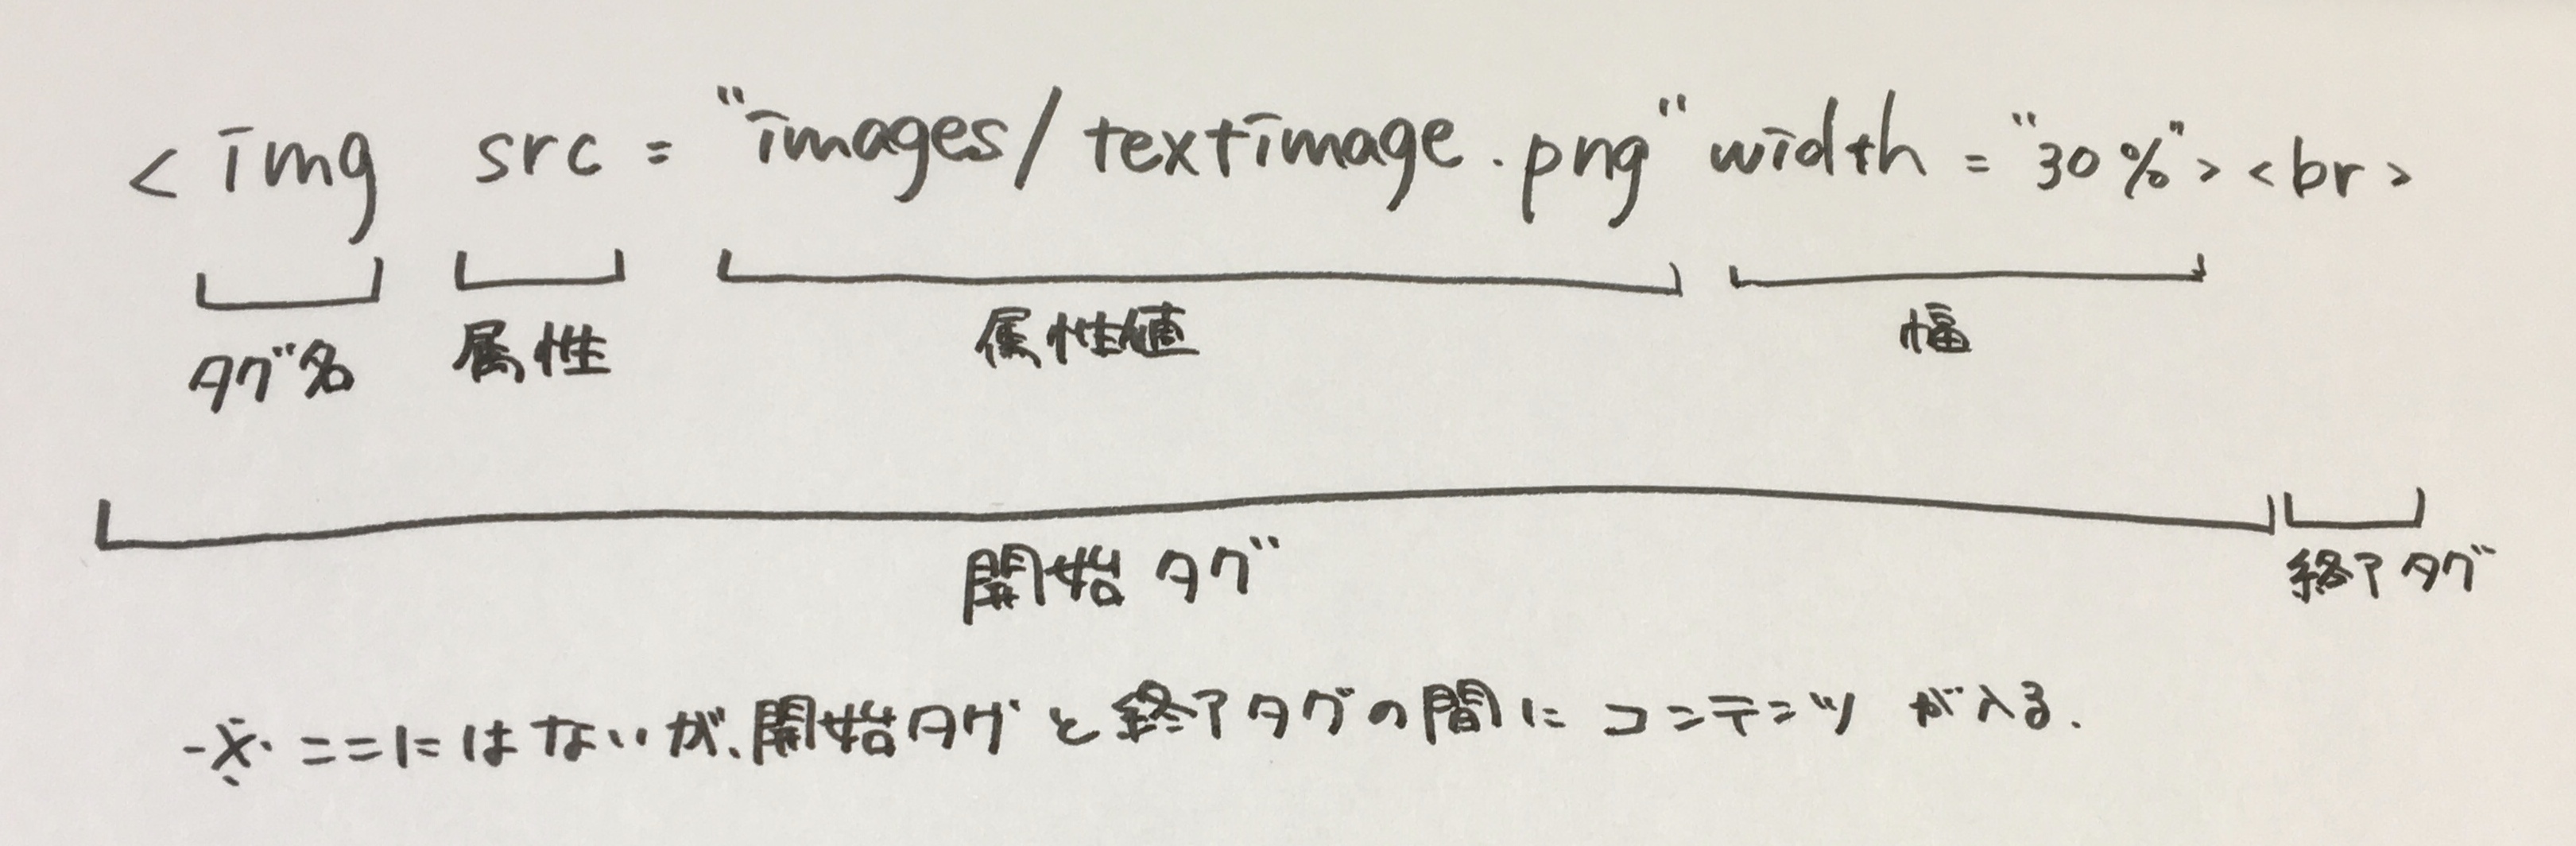 <img src="images/textimage.png" width="30%"><br>
タグ名 属性 属性値 幅
開始タグ 終了タグ
※ここにはないが、開始タグと終了タグの間にコンテンツが入る.